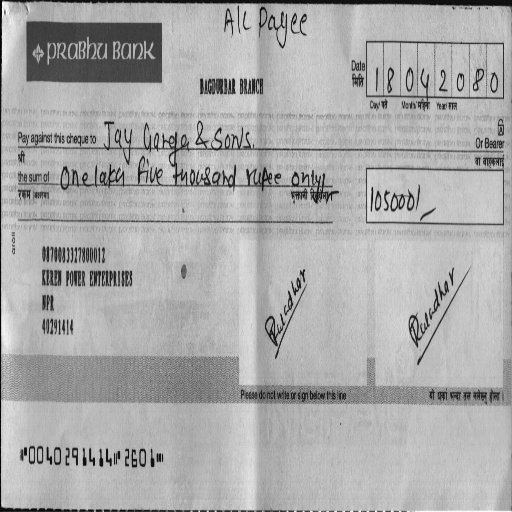 A/C Payee
PRABHU BANK
BAGDURBAR BRANCH
Date
मिति
18042080
Day/ गते Month/ महिना Year/ साल
Pay against this cheque to Jay Ganga & Sons.
Or Bearer
श्री
वा वाहकलाई
the sum of One lakh five thousand rupee only/
रकम
105000/-
0870083327800012
KEREN POWER ENTERPRISES
NPR
40291414
Please do not write or sign below this line
⑈0040291414⑈2601⑈